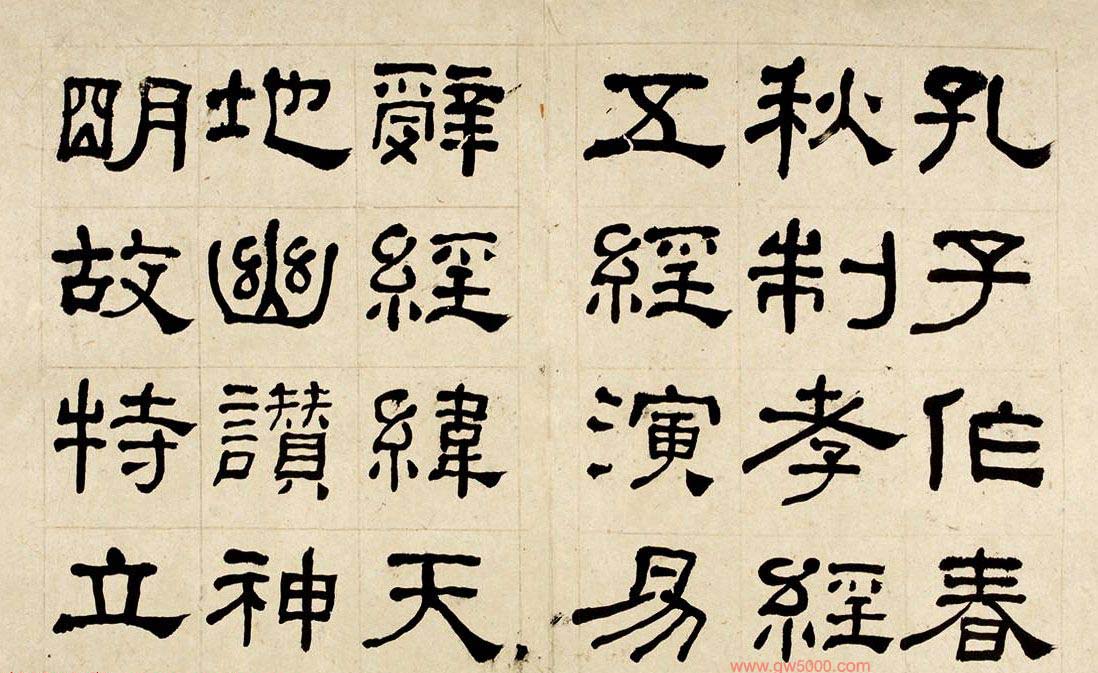 孔子作春
秋制孝經
五經演易
辭經緯天
地幽讚神
明故特立
www.gw5000.com